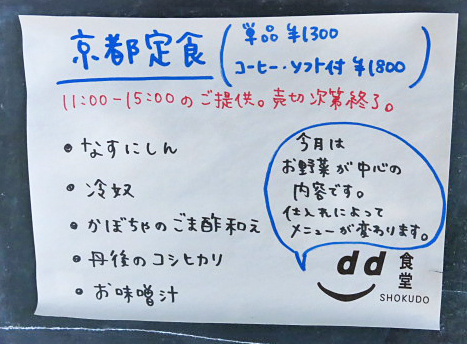 京都定食
単品 ¥1300
コーヒー・ソフト付 ¥1800
11:00-15:00のご提供。売切次第終了。
• なすにしん
• 冷奴
• かぼちゃのごま酢和え
• 丹後のコシヒカリ
• お味噌汁
今月は
お野菜が中心の
内容です。
仕入れによって
メニューが変わります。
dd食堂
SHOKUDO